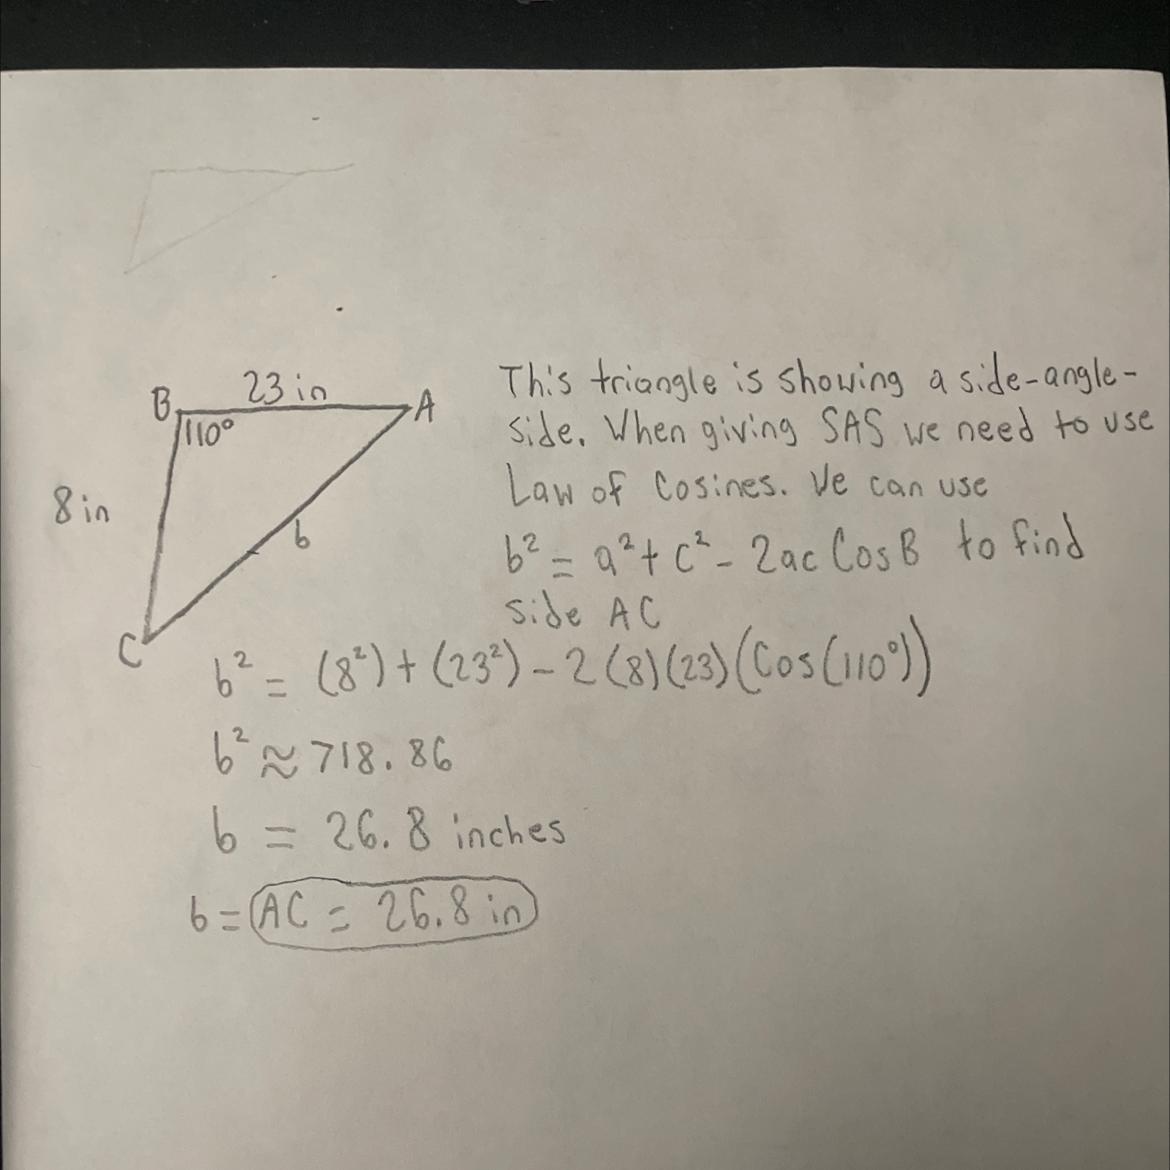 23 in
B
A
110°
8 in
b
C
This triangle is showing a side-angle-
side. When giving SAS we need to use
Law of Cosines. We can use
b² = a² + c² - 2ac Cos B to find
side AC
b² = (8²) + (23²) - 2 (8) (23) (Cos (110°))
b² ≈ 718.86
b = 26.8 inches
b = AC = 26.8 in